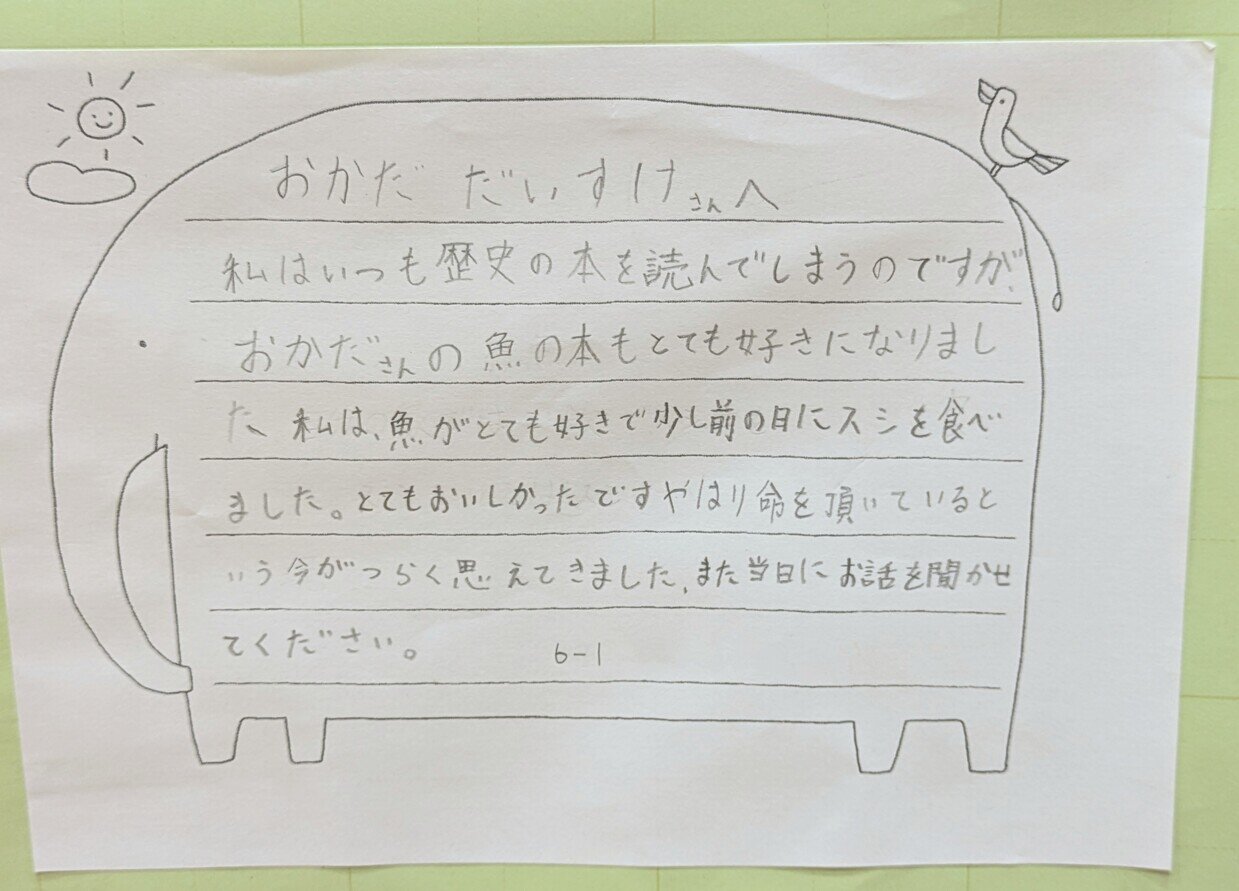 おかだ だいすけさんへ
私はいつも歴史の本を読んでしまうのですが、
おかださんの魚の本もとても好きになりまし
た 私は、魚がとても好きで少し前の日にスシを食べ
ました。とてもおいしかったですやはり命を頂いていると
いう今がつらく思えてきました、また当日にお話を聞かせ
てください。 6-1